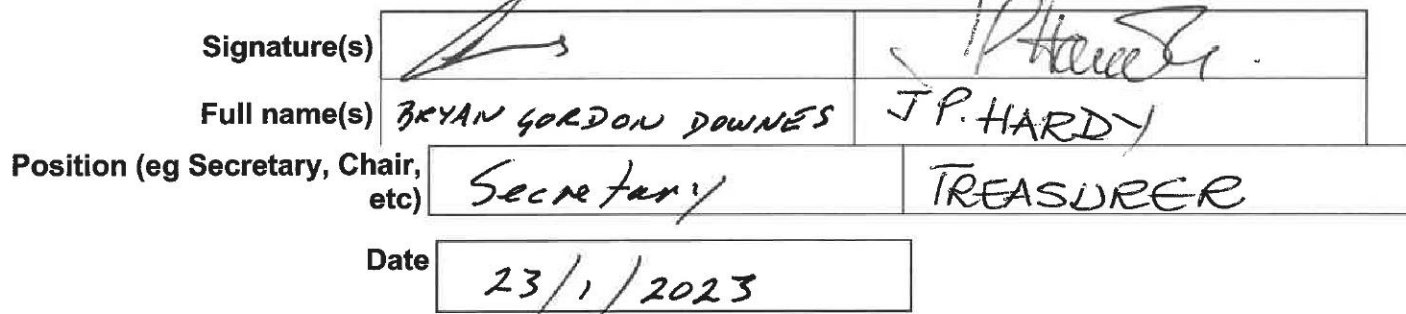 Signature(s)
Full name(s) BRYAN GORDON DOWNES J P. HARDY
Position (eg Secretary, Chair, etc) Secretary TREASURER
Date 23/1/2023